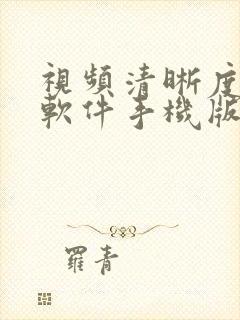 視頻清晰度
軟件手機版
羅青